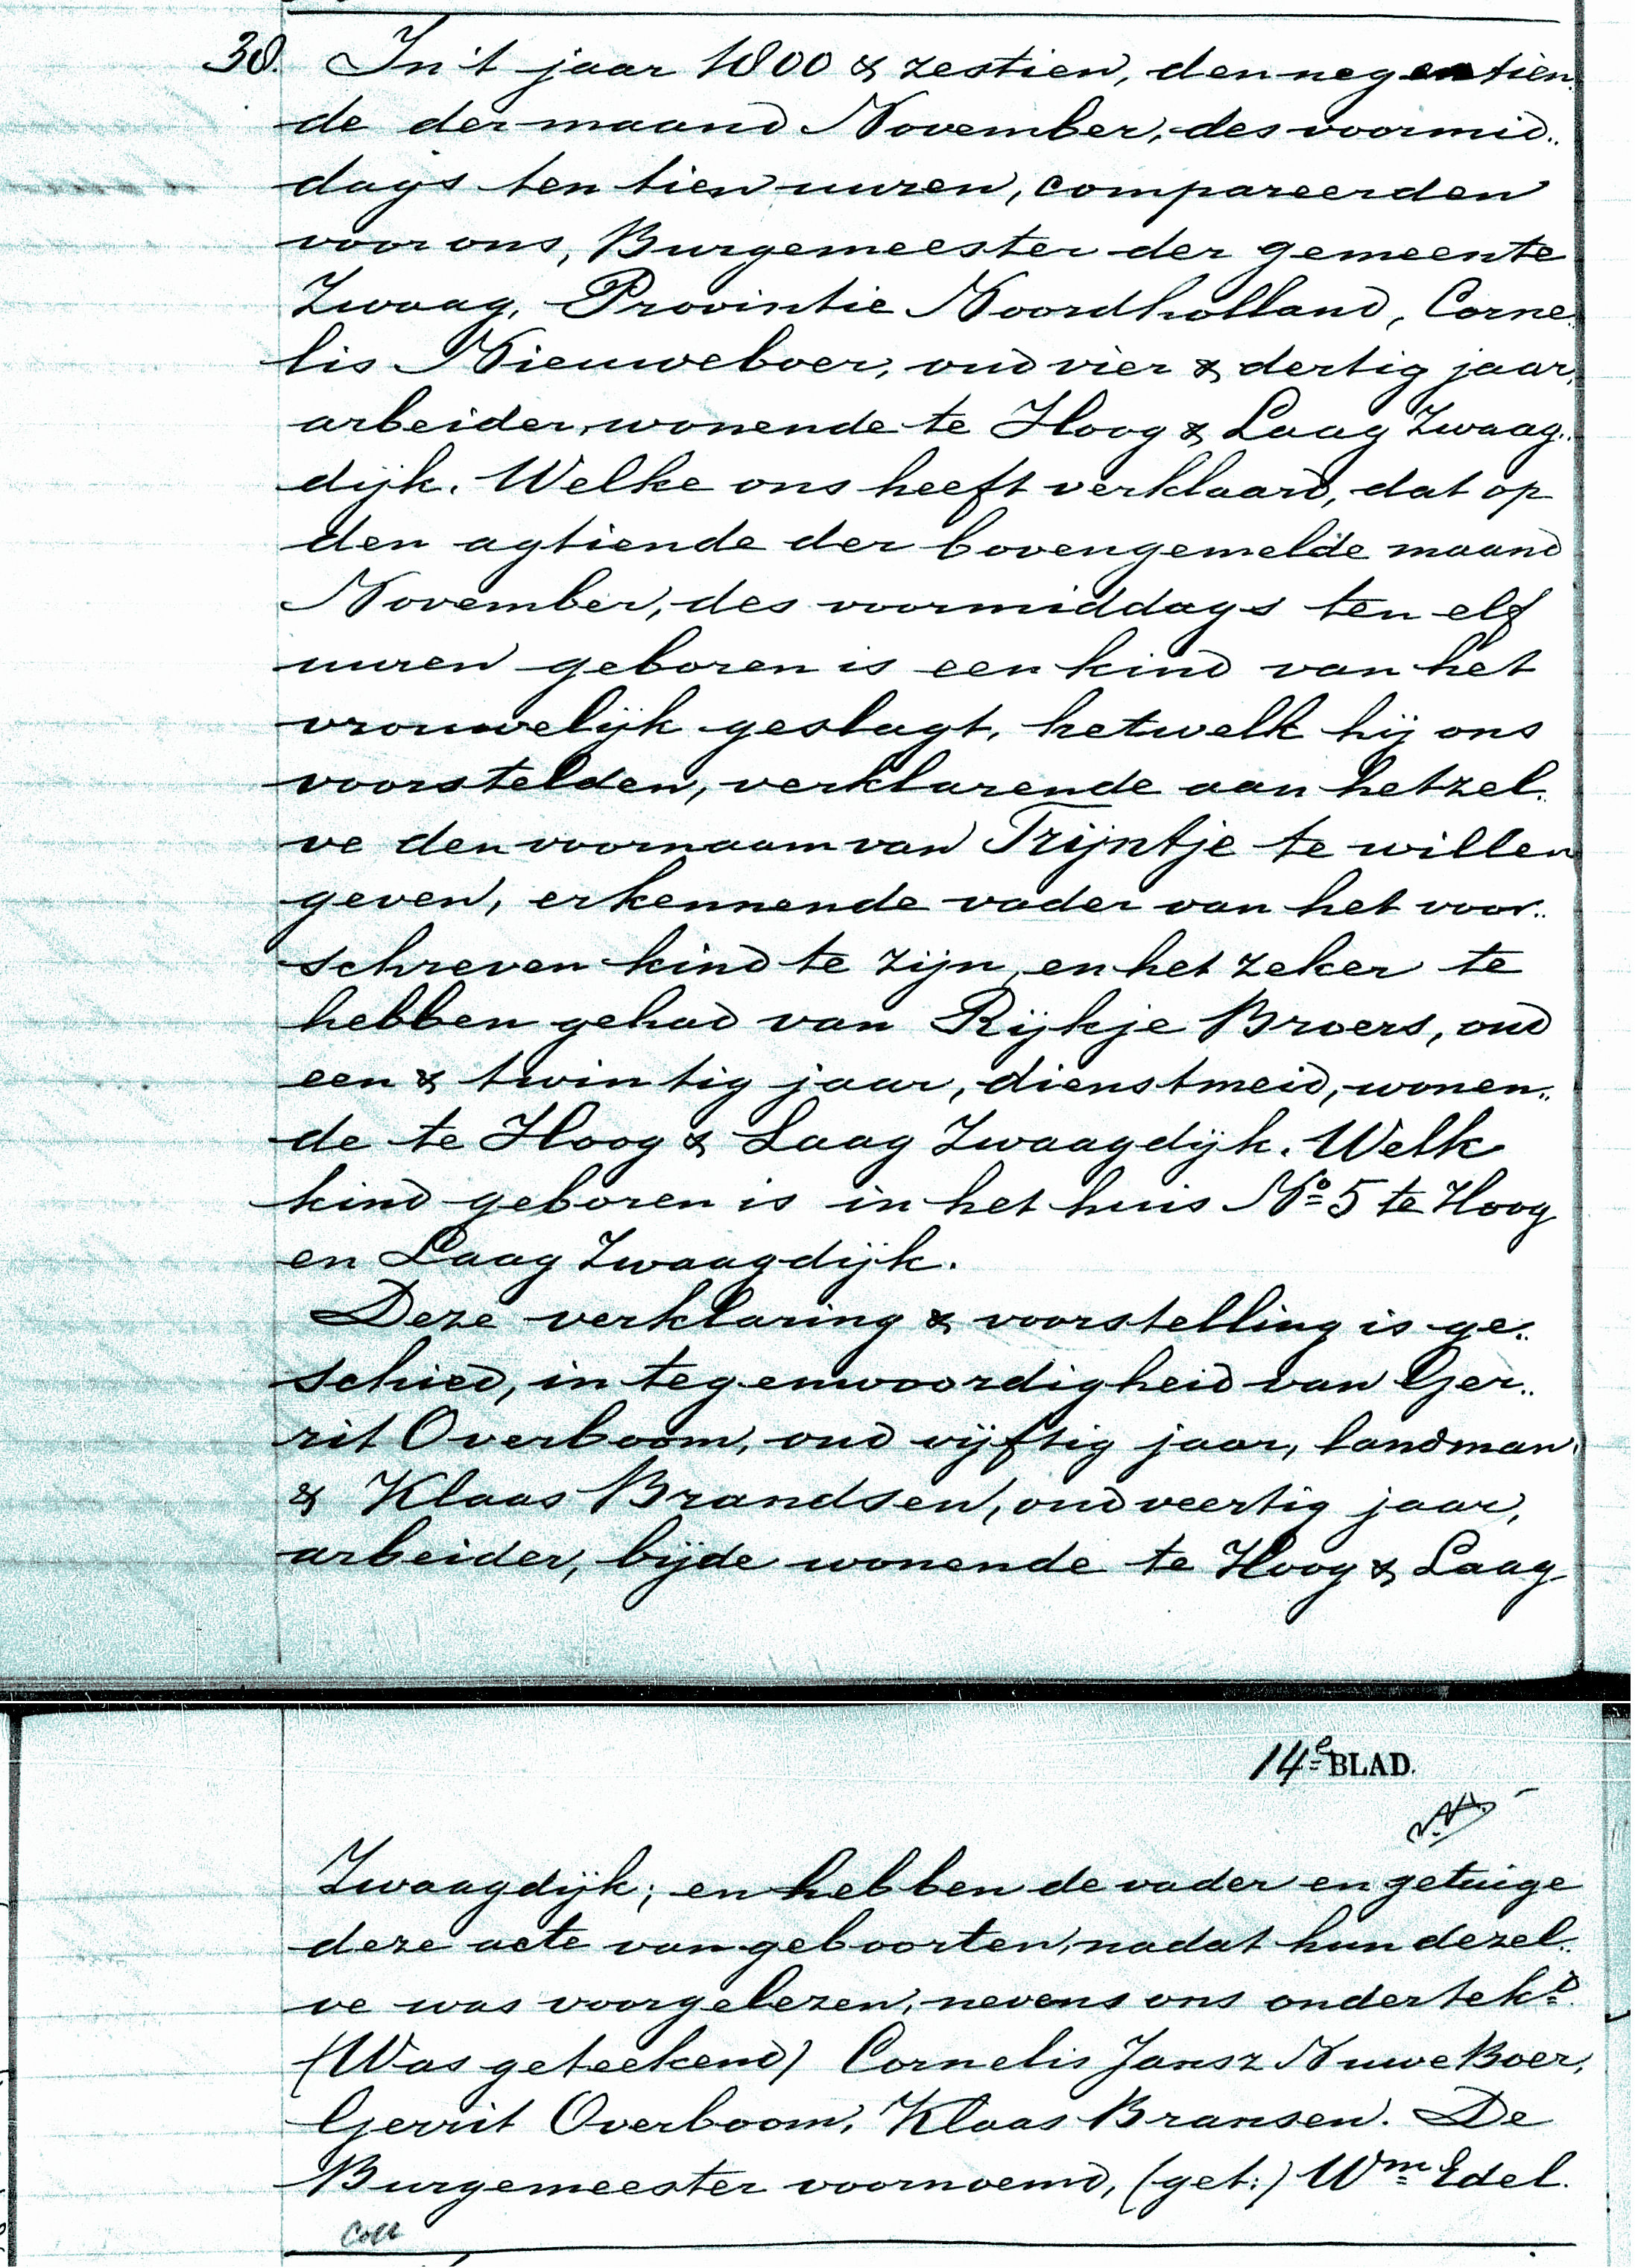 38. In 't jaar 1800 & zestien, den negentien
de der maand November, des voormid..
dags ten tien uuren, compareerden
voor ons, Burgemeester der gemeente
Zwaag, Provintie Noordholland, Corne..
lis Nieuweboer, oud vier & dertig jaar,
arbeider, wonende te Hoog & Laag Zwaag..
dijk. Welke ons heeft verklaard, dat op
den agtiende der bovengemelde maand
November, des voormiddags ten elf
uuren geboren is een kind van het
vrouwelijk geslagt, hetwelk hij ons
voorstelden, verklarende aan hetzel..
ve den voornaam van Trijntje te willen
geven, erkennende vader van het voor..
schreven kind te zijn, en het zeker te
hebben gehad van Rijkje Broers, oud
een & twintig jaar, dienstmeid, wonen..
de te Hoog & Laag Zwaagdijk. Welk
kind geboren is in het huis No 5 te Hoog
en Laag Zwaagdijk.
Deze verklaring & voorstelling is ge..
schied, in tegenwoordigheid van Ger..
rit Overboom, oud vijftig jaar, landman,
& Klaas Brandsen, oud veertig jaar,
arbeider, bijde wonende te Hoog & Laag
14e BLAD.
Zwaagdijk; en hebben de vader en getuige
deze acte van geboorten, nadat hun dezel..
ve was voorgelezen, nevens ons ondertekd.
(Was geteekend) Cornelis Jansz Nuwe Boer,
Gerrit Overboom, Klaas Bransen. De
Burgemeester voornoemd, (get:) Wm Edel.
Coll